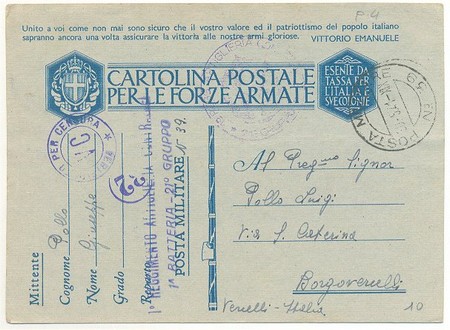 P-4
Unito a voi come non mai sono sicuro che il vostro valore ed il patriottismo del popolo italiano
sapranno ancora una volta assicurare la vittoria alle nostre armi gloriose. VITTORIO EMANUELE
CARTOLINA POSTALE
PER LE FORZE ARMATE
ESENTE DA
TASSA PER
L'ITALIA
SUE COLONIE
POSTA M
N 39
PER CENSURA
C
32
Mittente
Cognome Pollo
Nome Giuseppe
Grado
Reparto
1° REGGIMENTO ARTIGLIERIA
1ª BATTERIA - 21° GRUPPO
POSTA MILITARE N. 39.
Al Preg Signor
Pollo Luigi
Via S. Caterina
Borgovercelli
Vercelli - Italia
10